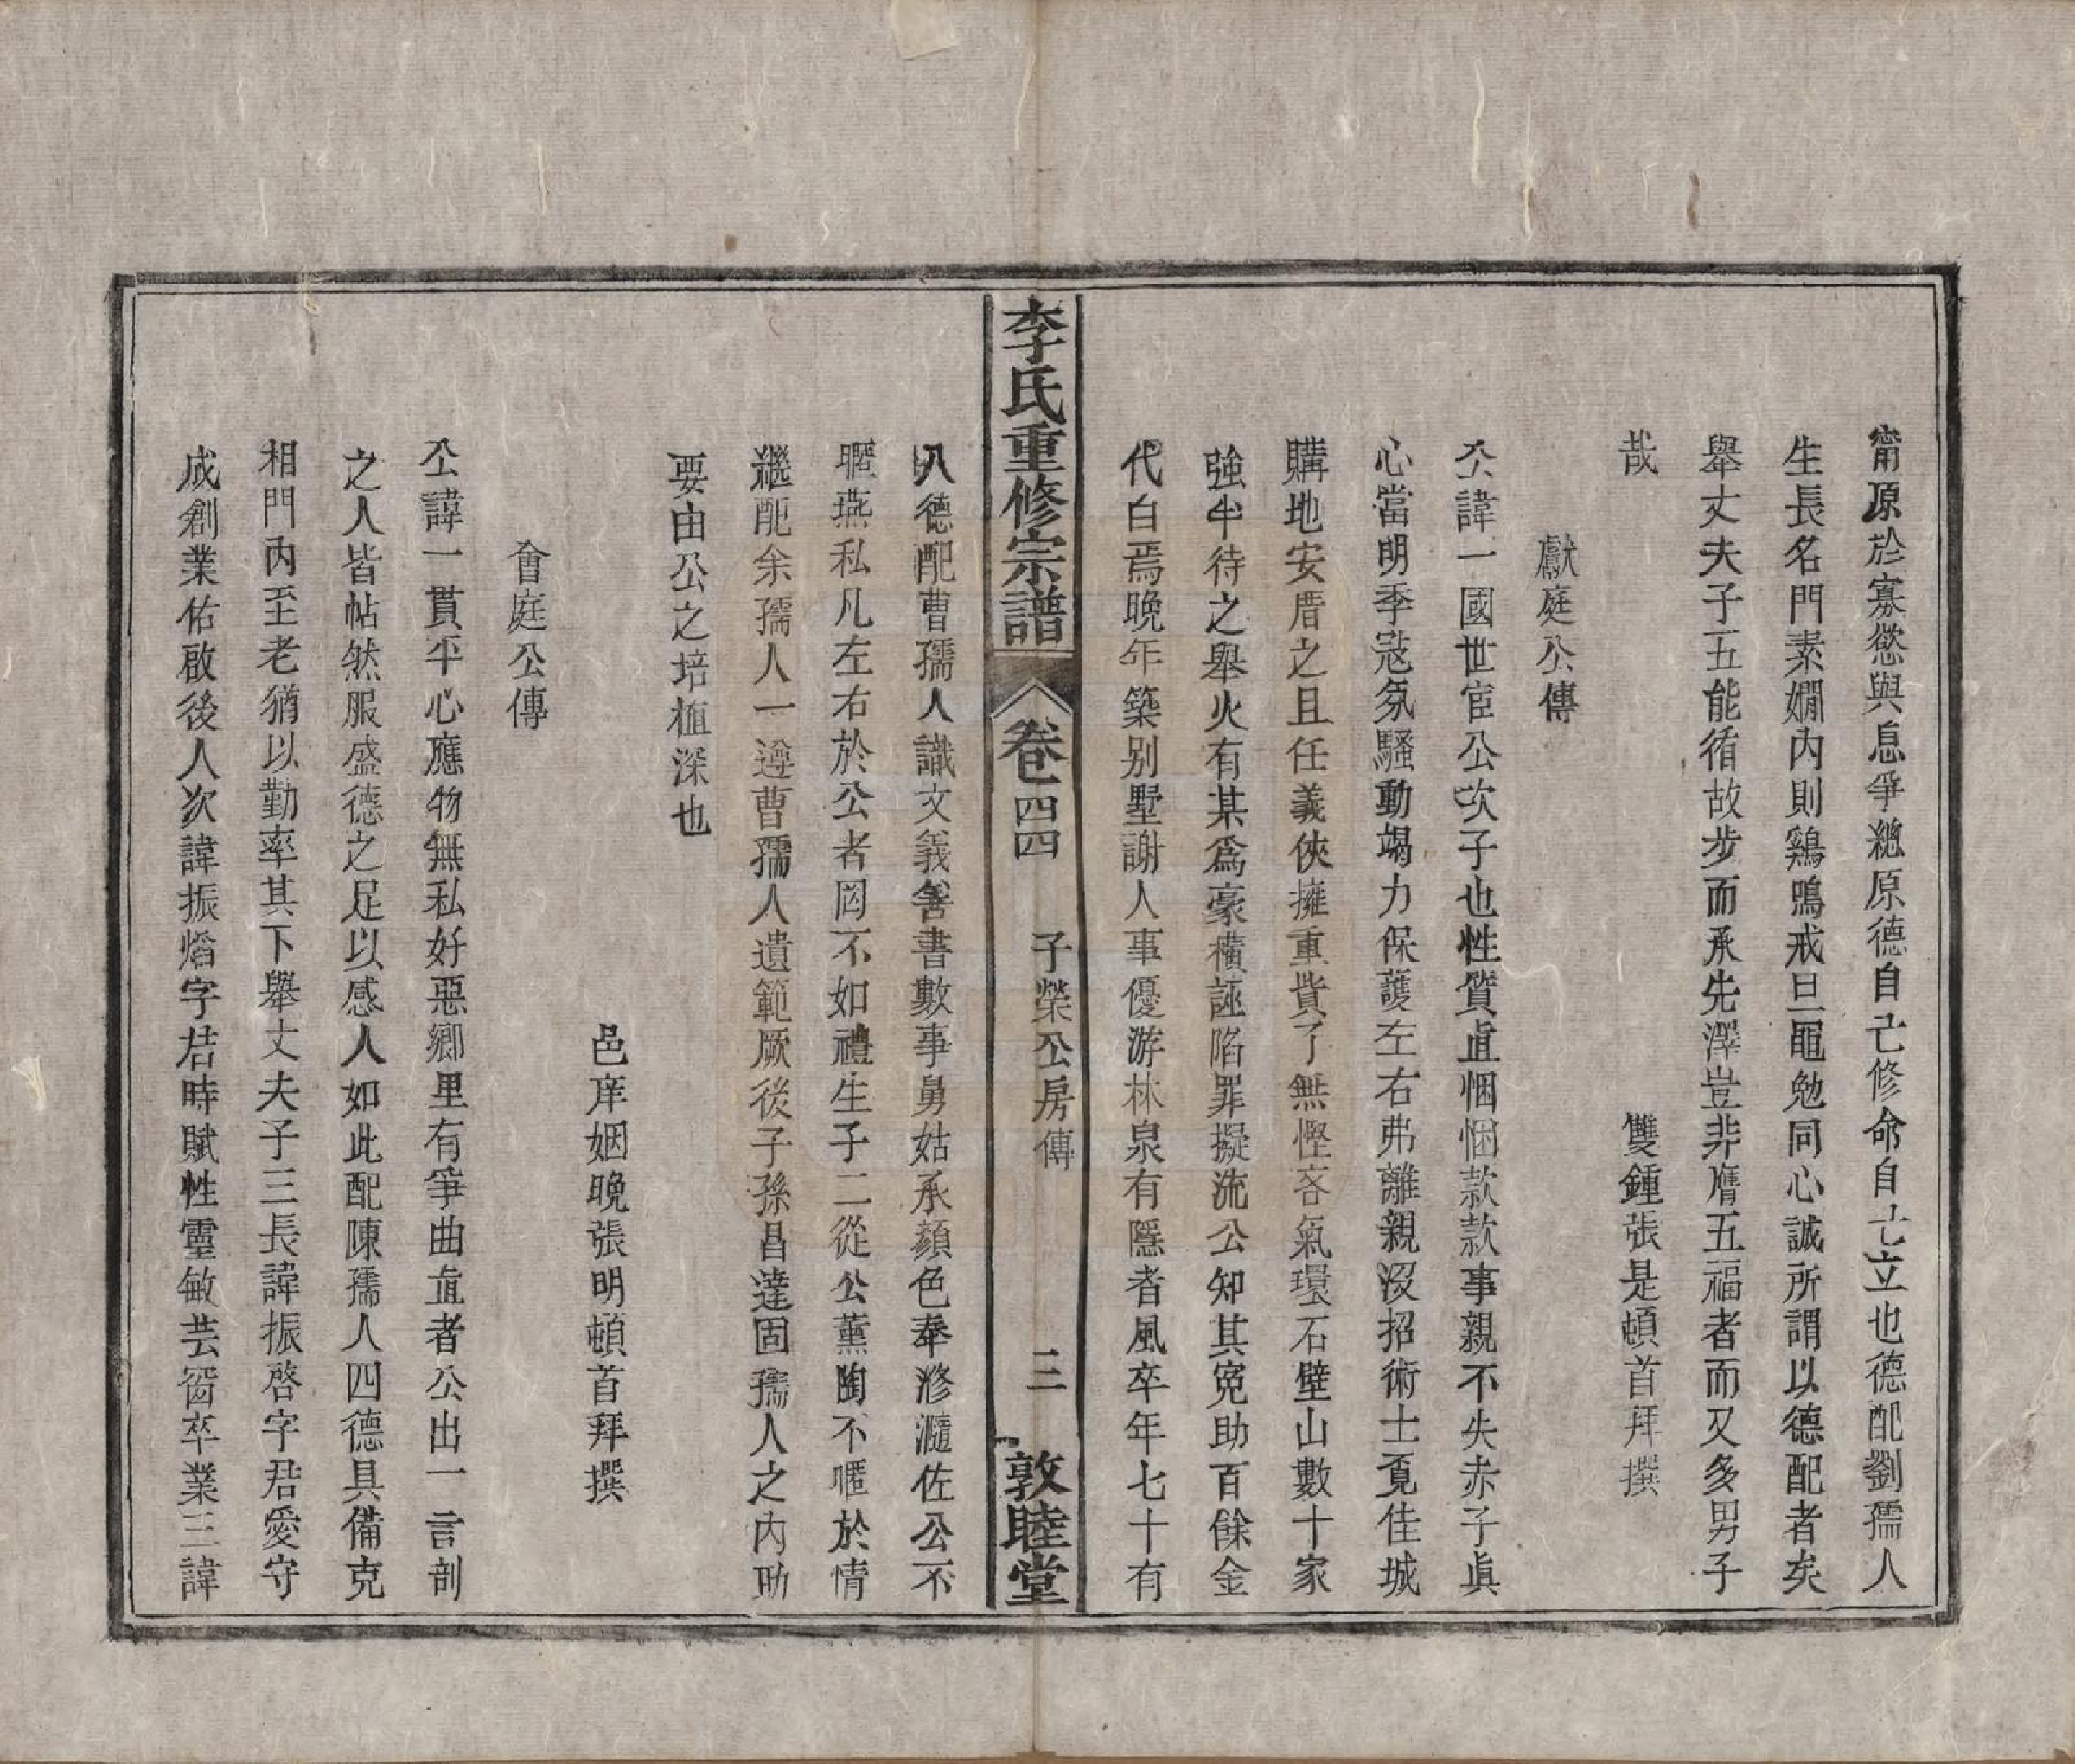 甯原於寡慾與息爭總原德自己修命自己立也德配劉孺人
生長名門素嫻內則鷄鳴戒旦黽勉同心誠所謂以德配者矣
舉丈夫子五能循故步而承先澤豈非膺五福者而又多男子
哉　雙鍾張是頓首拜撰
獻庭公傳
公諱一國世宦公次子也性質直悃悃款款事親不失赤子眞
心當明季冦氛騷動竭力保護左右弗離親沒招術士覔佳城
購地安厝之且任義俠擁重貲了無慳吝氣環石壁山數十家
強半待之舉火有某爲豪橫誣陷罪擬流公知其寃助百餘金
代白焉晚年築别墅謝人事優游林泉有隱者風卒年七十有
李氏重修宗譜　卷四四　子榮公房傳　三　敦睦堂
八德配曹孺人識文義善書數事舅姑承顔色奉滫瀡佐公不
暱燕私凡左右於公者罔不如禮生子二從公薰陶不暱於情
繼配余孺人一遵曹孺人遺範厥後子孫昌達固孺人之內助
要由公之培植深也
邑庠姻晚張明頓首拜撰
會庭公傳
公諱一貫平心應物無私好惡鄉里有爭曲直者公出一言剖
之人皆帖然服盛德之足以感人如此配陳孺人四德具備克
相門內至老猶以勤率其下舉丈夫子三長諱振啓字君愛守
成創業佑啟後人次諱振熖字君時賦性靈敏芸窗卒業三諱